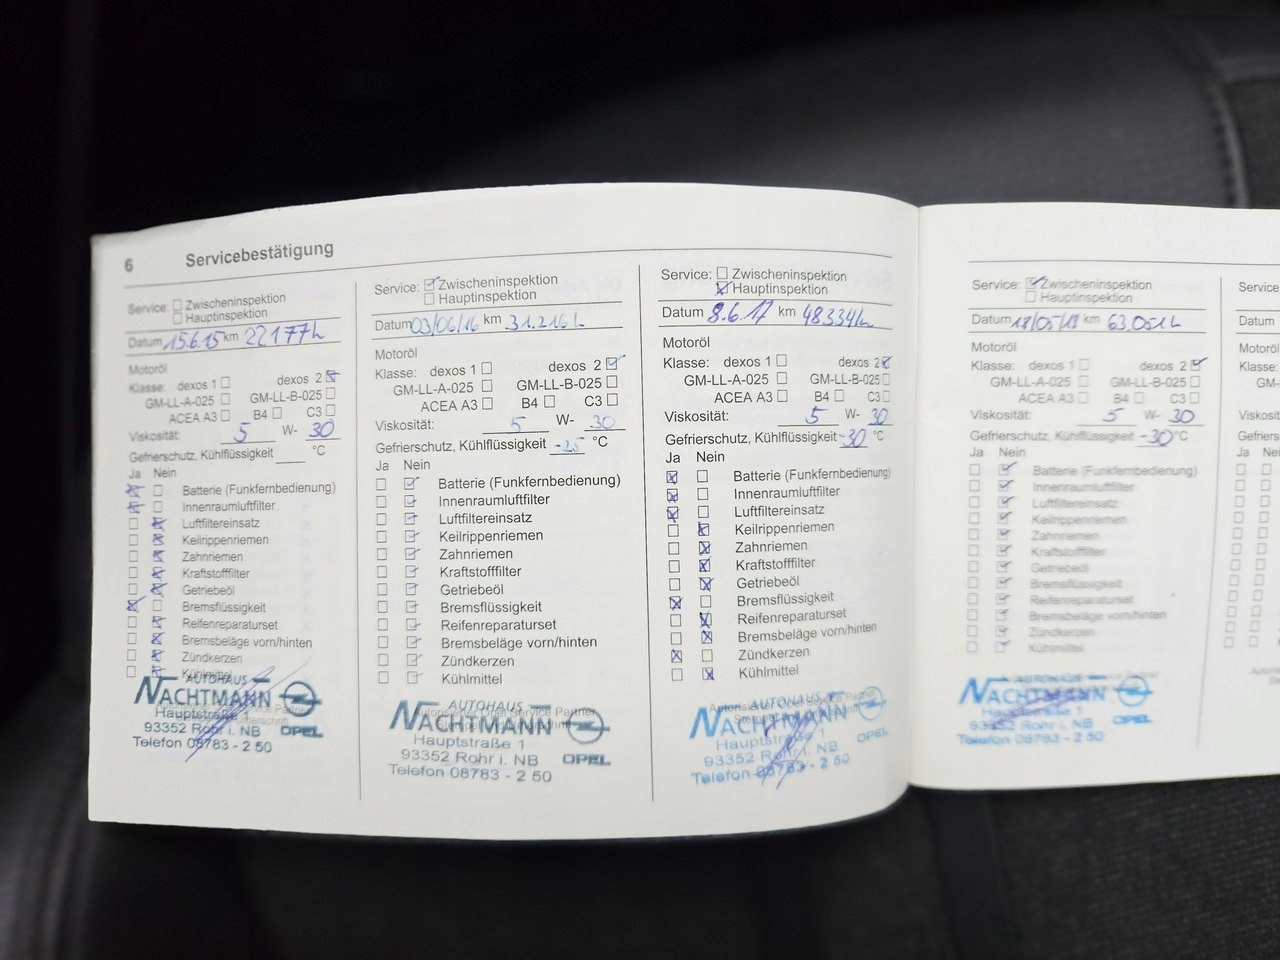 6 Servicebestätigung
Service: Zwischeninspektion
Hauptinspektion
Datum 15.6.15 km 22177
Motoröl
Klasse: dexos 1 dexos 2
GM-LL-A-025 GM-LL-B-025
ACEA A3 B4 C3
Viskosität: 5 W- 30
Gefrierschutz, Kühlflüssigkeit °C
Ja Nein
Batterie (Funkfernbedienung)
Innenraumluftfilter
Luftfiltereinsatz
Keilrippenriemen
Zahnriemen
Kraftstofffilter
Getriebeöl
Bremsflüssigkeit
Reifenreparaturset
Bremsbeläge vorn/hinten
Zündkerzen
Kühlmittel
AUTOHAUS
NACHTMANN
Hauptstraße 1
93352 Rohr i. NB OPEL
Telefon 08783 - 2 50
Service: Zwischeninspektion
Hauptinspektion
Datum 03/06/16 km 31.216
Motoröl
Klasse: dexos 1 dexos 2
GM-LL-A-025 GM-LL-B-025
ACEA A3 B4 C3
Viskosität: 5 W- 30
Gefrierschutz, Kühlflüssigkeit -25 °C
Ja Nein
Batterie (Funkfernbedienung)
Innenraumluftfilter
Luftfiltereinsatz
Keilrippenriemen
Zahnriemen
Kraftstofffilter
Getriebeöl
Bremsflüssigkeit
Reifenreparaturset
Bremsbeläge vorn/hinten
Zündkerzen
Kühlmittel
AUTOHAUS
NACHTMANN
Hauptstraße 1
93352 Rohr i. NB OPEL
Telefon 08783 - 2 50
Service: Zwischeninspektion
Hauptinspektion
Datum 8.6.17 km 48334
Motoröl
Klasse: dexos 1 dexos 2
GM-LL-A-025 GM-LL-B-025
ACEA A3 B4 C3
Viskosität: 5 W- 30
Gefrierschutz, Kühlflüssigkeit -30 °C
Ja Nein
Batterie (Funkfernbedienung)
Innenraumluftfilter
Luftfiltereinsatz
Keilrippenriemen
Zahnriemen
Kraftstofffilter
Getriebeöl
Bremsflüssigkeit
Reifenreparaturset
Bremsbeläge vorn/hinten
Zündkerzen
Kühlmittel
AUTOHAUS
NACHTMANN
Hauptstraße 1
93352 Rohr i. NB OPEL
Telefon 08783 - 2 50
Service: Zwischeninspektion
Hauptinspektion
Datum 18/05/18 km 63.051
Motoröl
Klasse: dexos 1 dexos 2
GM-LL-A-025 GM-LL-B-025
ACEA A3 B4 C3
Viskosität: 5 W- 30
Gefrierschutz, Kühlflüssigkeit -30 °C
Ja Nein
Batterie (Funkfernbedienung)
Innenraumluftfilter
Luftfiltereinsatz
Keilrippenriemen
Zahnriemen
Kraftstofffilter
Getriebeöl
Bremsflüssigkeit
Reifenreparaturset
Bremsbeläge vorn/hinten
Zündkerzen
Kühlmittel
NACHTMANN
Hauptstraße 1
93352 Rohr i. NB OPEL
Telefon 08783 - 2 50
Service
Datum
Motoröl
Klasse:
Viskosität
Gefriers
Ja Nein